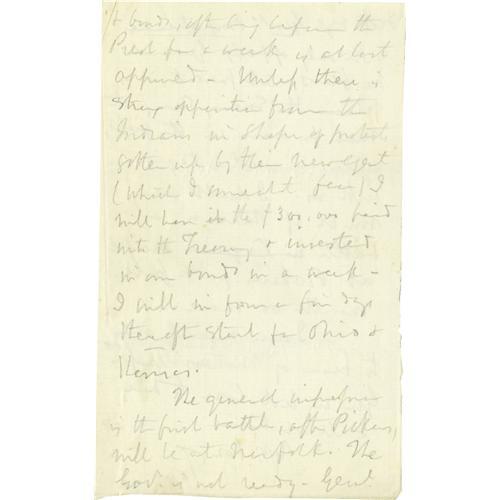 & bonds, after being before the
Prest for a week is at last
approved - Unless there is
strong opposition from the
Indians in shape of protest
gotten up by their new agent
(which I somewhat fear) I
will have it the $300,000 paid
into the Treasury & invested
in our bonds in a week -
I will in from a few days
thereaft start for Ohio &
Kansas.
The general impression
is the first battle, after Pickens,
will be at Norfolk. The
Gov. is not ready - Genl